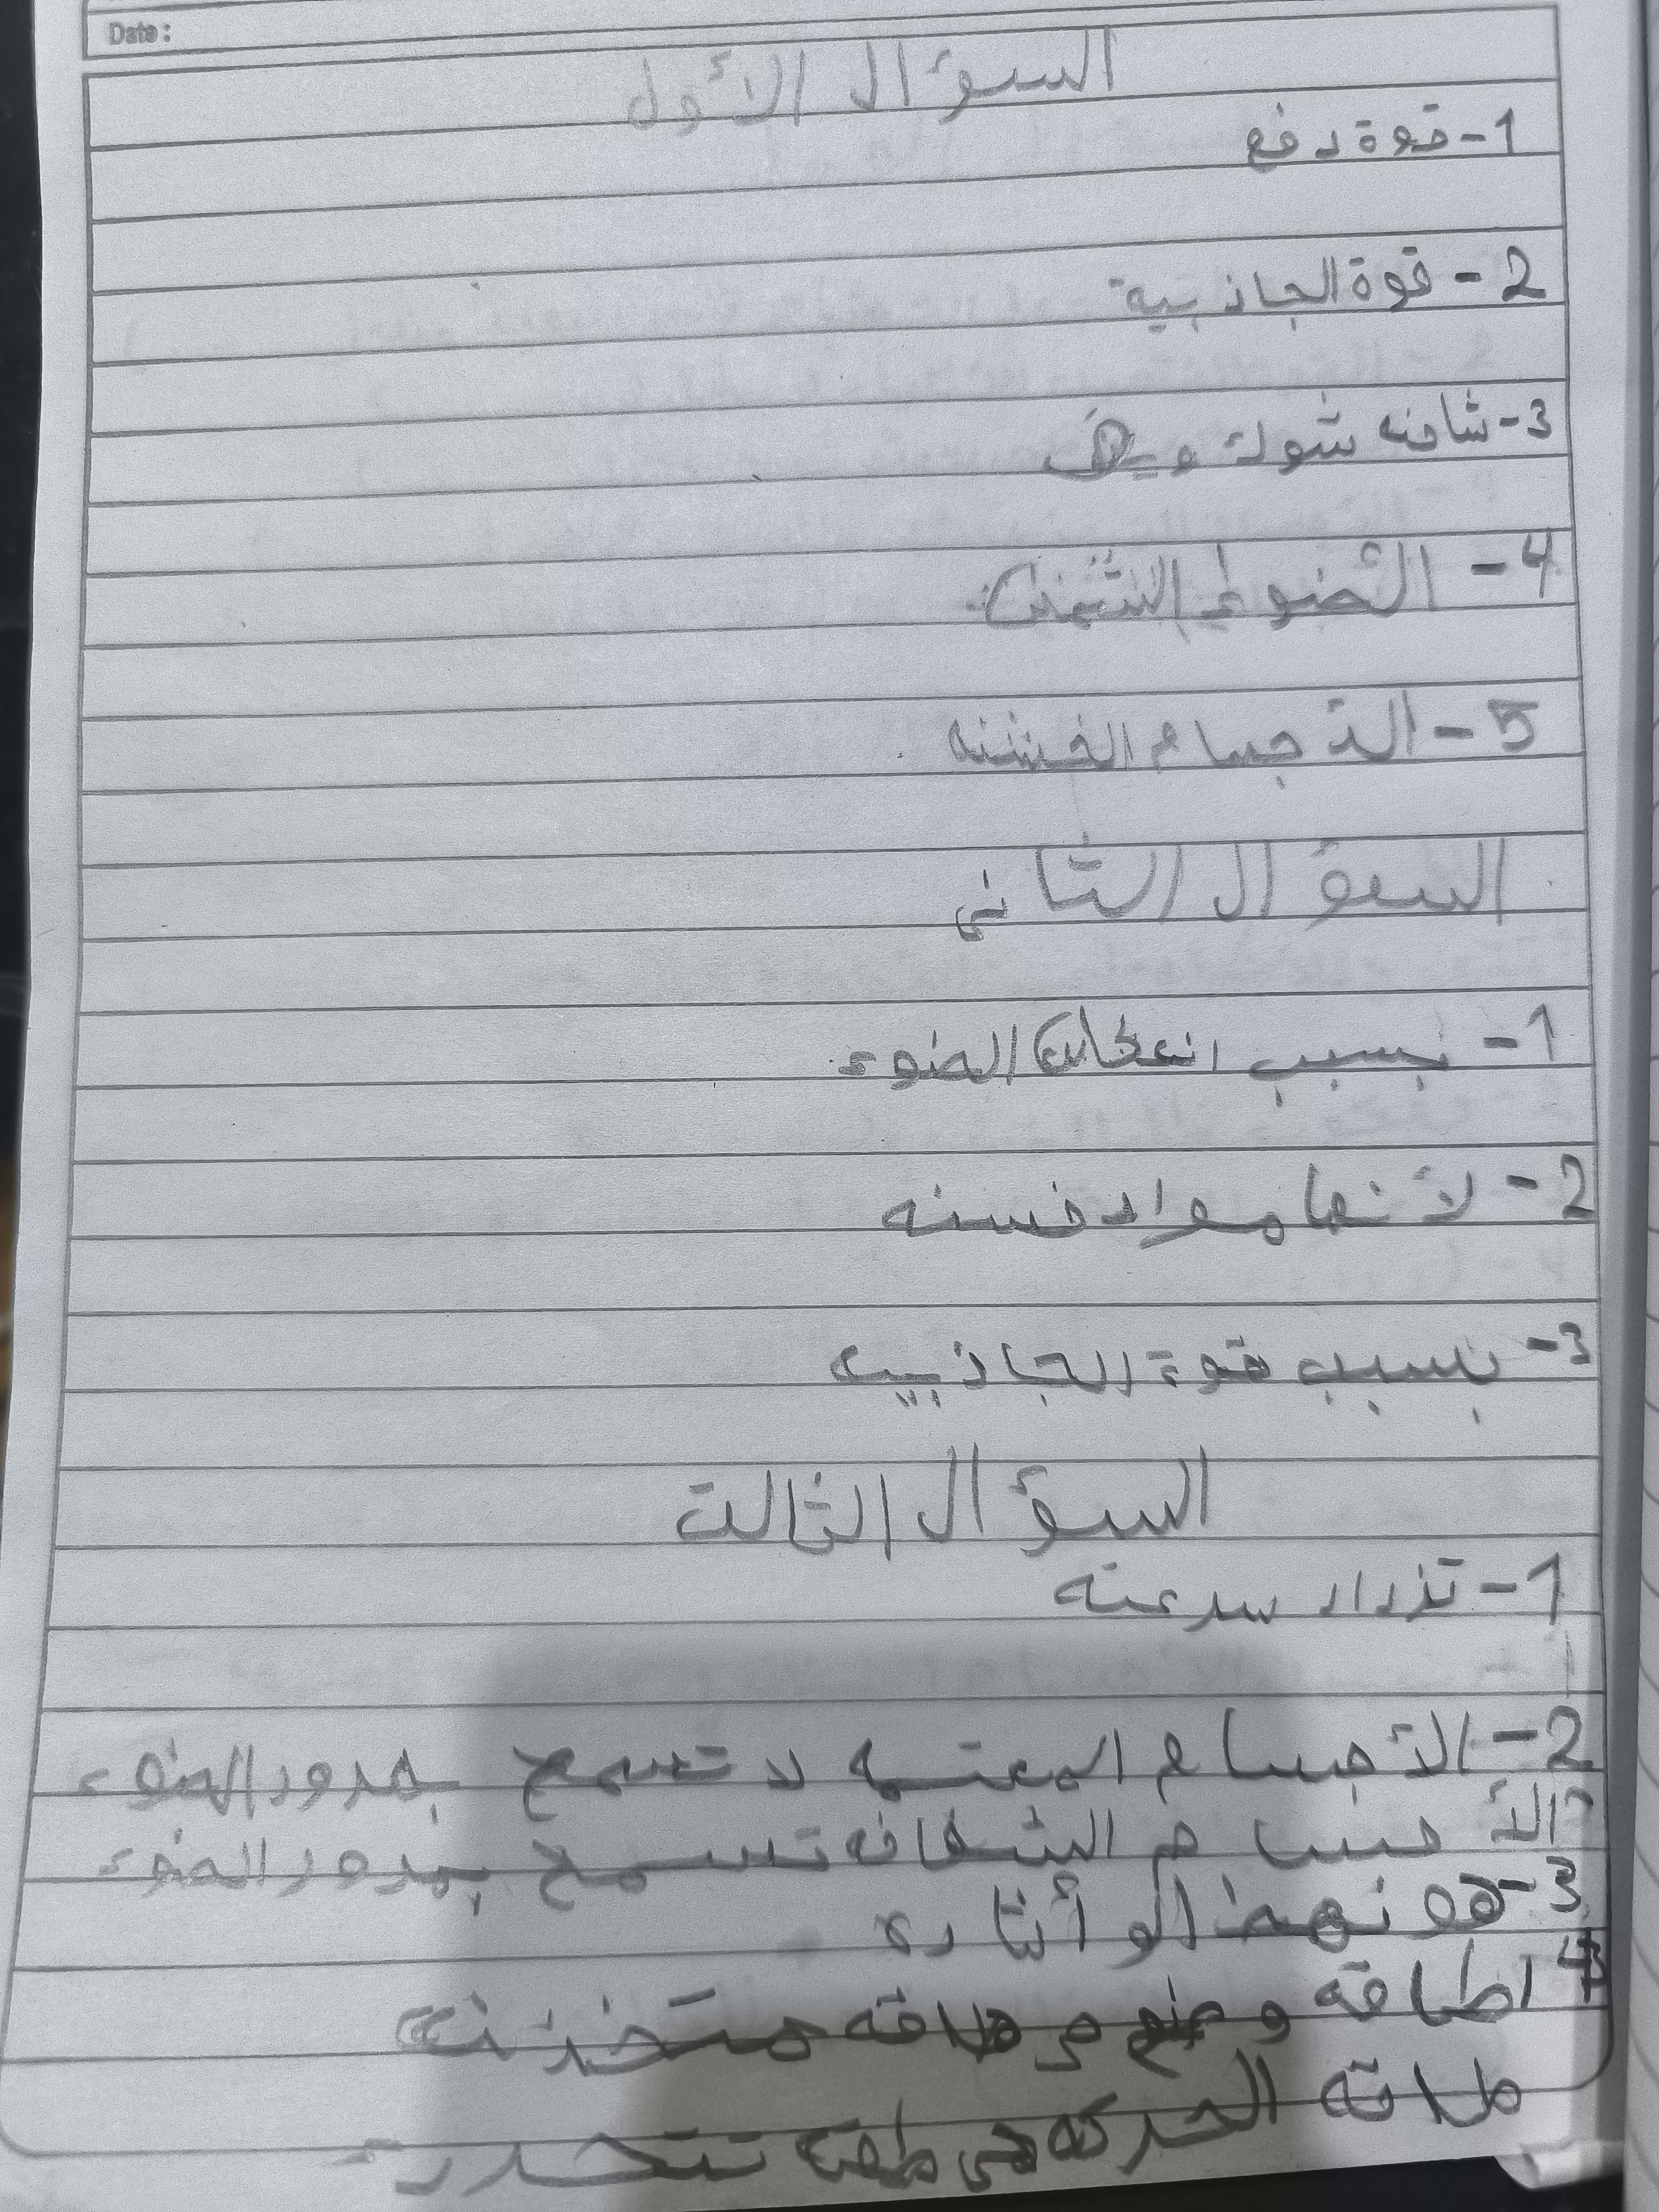 Date:
السؤال الأول
1- قوة دفع
2- قوة الجاذبية
3- شوك
4- الضوء
5- الأجسام الخشنه
السؤال الثاني
1- بسبب انعكاس الضوء
2- لأنها مواد خسنه
3- بسبب قوة الجاذبيه
السؤال الثالت
1- تزداد سرعته
2- الأجسام المعتمه لا تسمح بمرور الضوء
الأجسام الشفافه تسمح بمرور الضوء
3- هو نهضا لو أثاره
4 اطاقه وضع هي طاقه متخزنه
طاقه الحركه هي طقه تتحرر